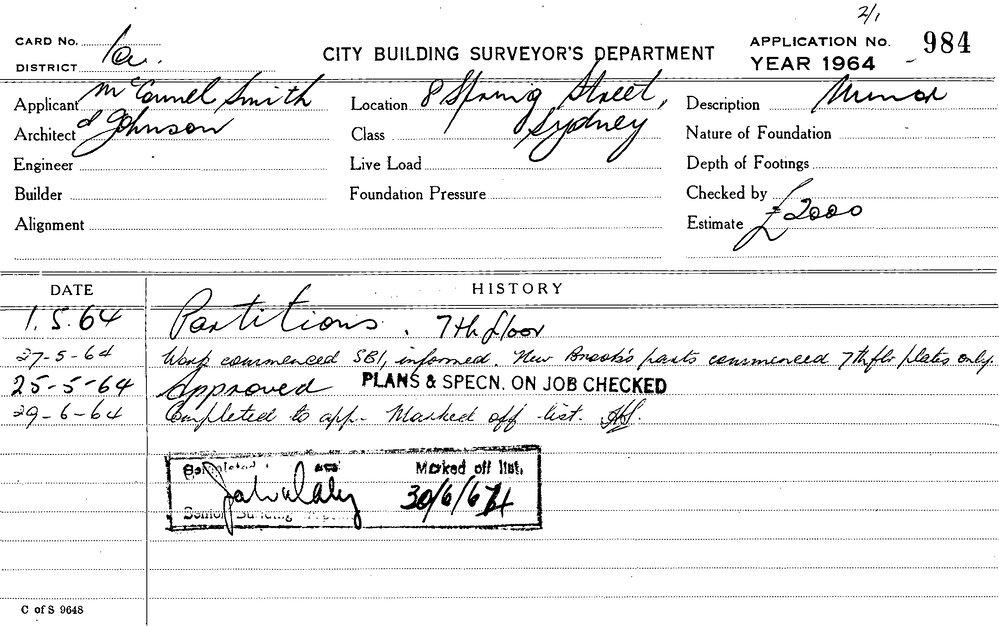 2/1
CARD No.
DISTRICT
CITY BUILDING SURVEYOR'S DEPARTMENT
APPLICATION No. 984
YEAR 1964
Applicant McConnel, Smith
Architect & Johnson
Engineer
Builder
Alignment
Location 8 Spring Street,
Class Sydney
Live Load
Foundation Pressure
Description Minor
Nature of Foundation
Depth of Footings
Checked by
Estimate £2000
DATE HISTORY
1.5.64 Partitions. 7th floor
27-5-64 Work commenced SBI, informed. New parts commenced 7th flr plates only.
25-5-64 Approved PLANS & SPECN. ON JOB CHECKED
29-6-64 Completed to app. Marked off list.
Completed Marked off list,
30/6/64
Senior Building
C of S 9648